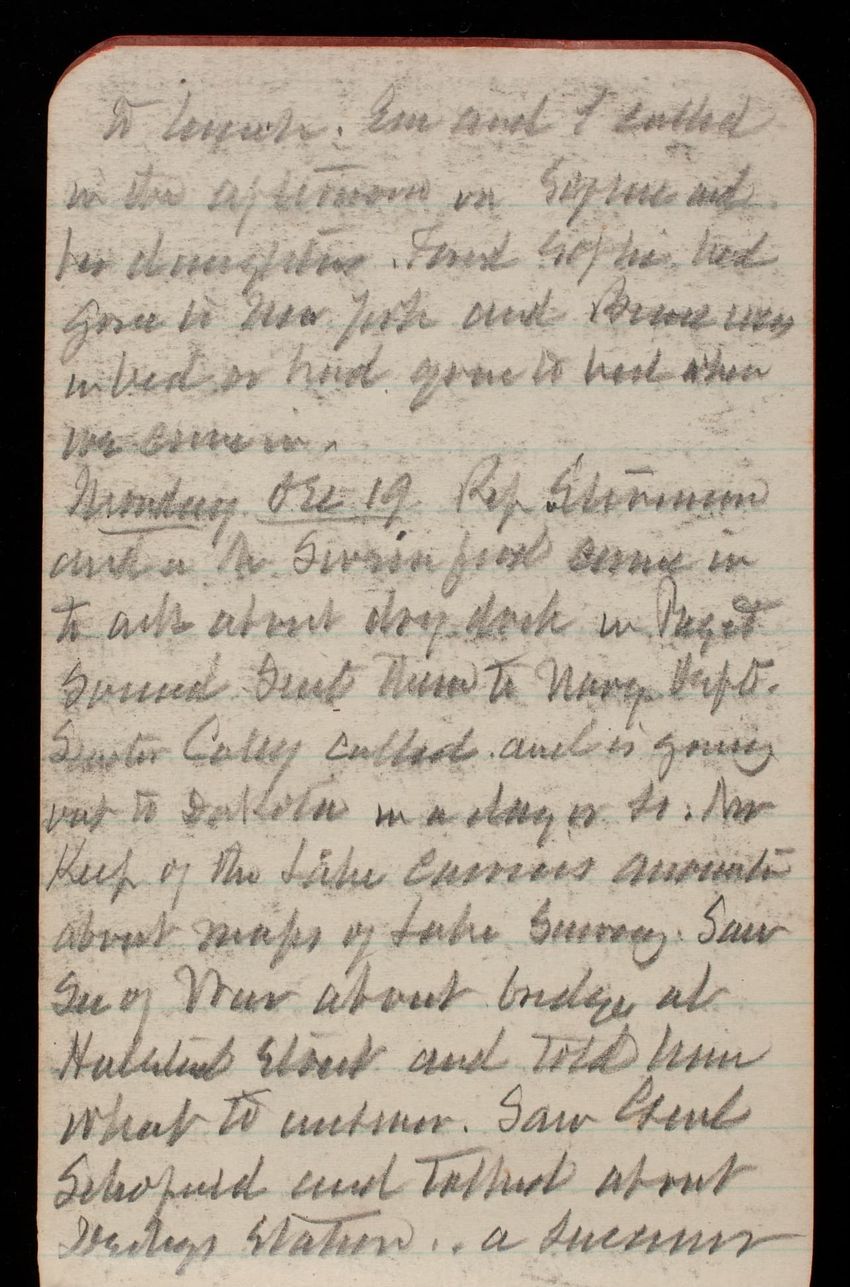 to lunch. Em and I called
in the afternoon on Sophie and
her daughters. Found Sophie had
gone to New York and was
in bed or had gone to bed when
we came in.
Monday Dec 19 Rep
and a Mr Swineford came in
to ask about dry dock in Puget
Sound Sent them to Navy Dept.
Senator Casey called and is going
out to Dakota in a day or so. Mr
Keep of the Lake Carriers
about maps of Lake Survey. Saw
Sec of War about bridge at
Halsted Street and told him
what to answer. Saw Genl
Schofield and talked about
Station .. a successor